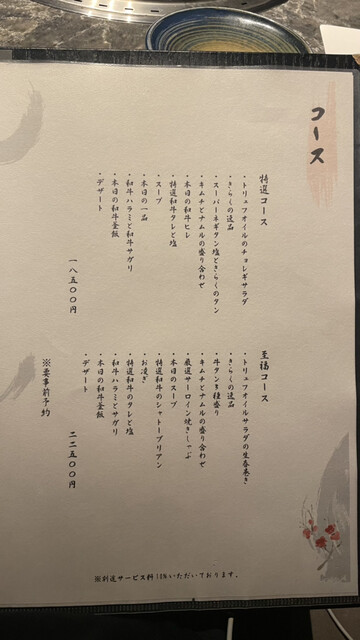 コース
特選コース
・トリュフオイルのチョレギサラダ
・きらくの逸品
・スーパーネギタン塩ときらくのタン
・キムチとナムルの盛り合わせ
・本日の和牛ヒレ
・特選和牛タレと塩
・スープ
・本日の一品
・和牛ハラミと和牛サガリ
・本日の和牛釜飯
・デザート
一八五〇〇円
至福コース
・トリュフオイルサラダの生春巻き
・きらくの逸品
・牛タン3種盛り
・キムチとナムルの盛り合わせ
・厳選サーロイン焼きしゃぶ
・本日のスープ
・特選和牛のシャトーブリアン
・お凌ぎ
・特選和牛のタレと塩
・和牛ハラミとサガリ
・本日の和牛釜飯
・デザート
二二五〇〇円
※要事前予約
※別途サービス料10%いただいております。